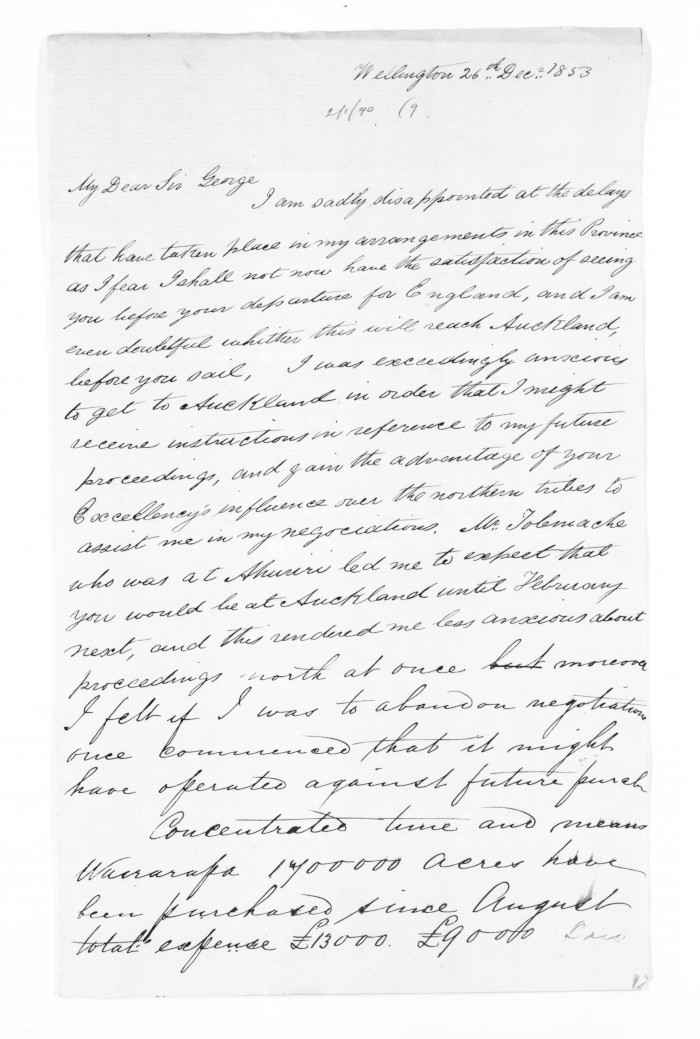 Wellington 26th Decr. 1853
2/1/70 (9
My Dear Sir George
I am sadly disappointed at the delays
that have taken place in my arrangements in this Province
as I fear I shall not now have the satisfaction of seeing
you before your departure for England, and I am
even doubtful whither this will reach Auckland,
before you sail, I was exceedingly anxious
to get to Auckland in order that I might
receive instructions in reference to my future
proceedings, and gain the advantage of your
Excellency's influence over the northern tribes to
assist me in my negociations. Mr. Tolemache
who was at Ahuriri led me to expect that
you would be at Auckland until February
next, and this rendered me less anxious about
proceedings north at once but moreover
I felt if I was to abandon negotiations
once commenced that it might
have operated against future purch
Concentrated time and means
Wairarapa 1700000 acres have
been purchased since August
total expense £13000. £90000